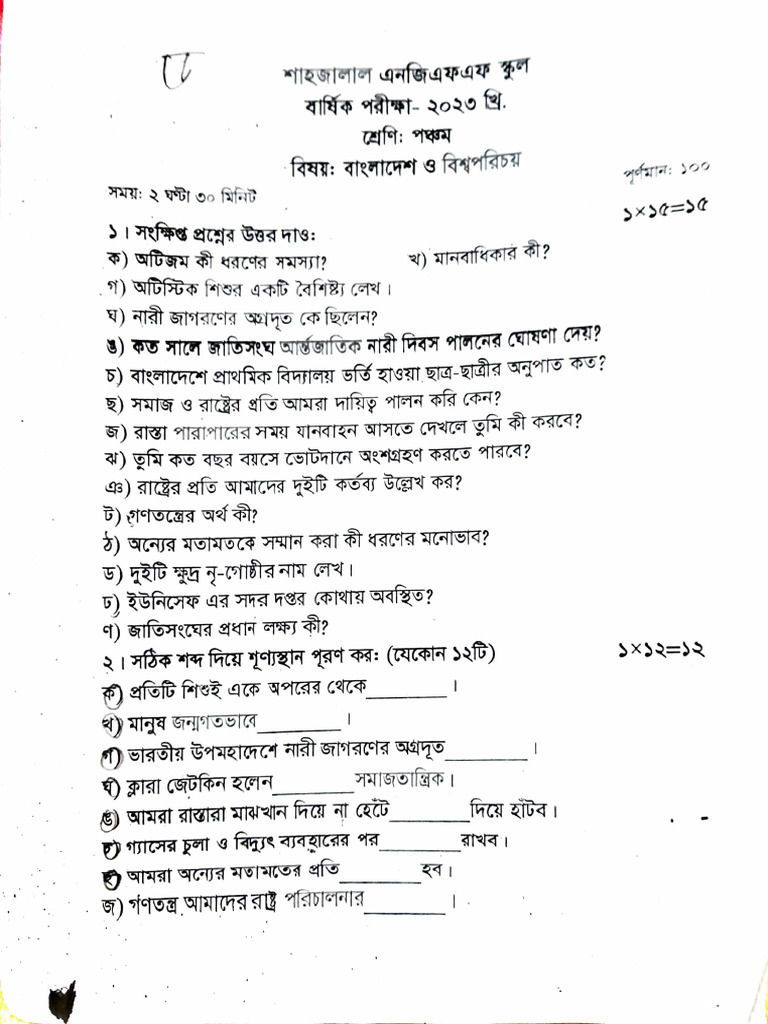 শাহজালাল এনজিএফএফ স্কুল
বার্ষিক পরীক্ষা- ২০২৩ খ্রি.
শ্রেণি: পঞ্চম
বিষয়: বাংলাদেশ ও বিশ্বপরিচয়
পূর্ণমান: ১০০
সময়: ২ ঘণ্টা ৩০ মিনিট
১। সংক্ষিপ্ত প্রশ্নের উত্তর দাও: ১×১৫=১৫
ক) অটিজম কী ধরণের সমস্যা? খ) মানবাধিকার কী?
গ) অটিস্টিক শিশুর একটি বৈশিষ্ট্য লেখ।
ঘ) নারী জাগরণের অগ্রদূত কে ছিলেন?
ঙ) কত সালে জাতিসংঘ আর্ন্তজাতিক নারী দিবস পালনের ঘোষণা দেয়?
চ) বাংলাদেশে প্রাথমিক বিদ্যালয় ভর্তি হাওয়া ছাত্র-ছাত্রীর অনুপাত কত?
ছ) সমাজ ও রাষ্ট্রের প্রতি আমরা দায়িত্ব পালন করি কেন?
জ) রাস্তা পারাপারের সময় যানবাহন আসতে দেখলে তুমি কী করবে?
ঝ) তুমি কত বছর বয়সে ভোটদানে অংশগ্রহণ করতে পারবে?
ঞ) রাষ্ট্রের প্রতি আমাদের দুইটি কর্তব্য উল্লেখ কর?
ট) গণতন্ত্রের অর্থ কী?
ঠ) অন্যের মতামতকে সম্মান করা কী ধরণের মনোভাব?
ড) দুইটি ক্ষুদ্র নৃ-গোষ্ঠীর নাম লেখ।
ঢ) ইউনিসেফ এর সদর দপ্তর কোথায় অবস্থিত?
ণ) জাতিসংঘের প্রধান লক্ষ্য কী?
২। সঠিক শব্দ দিয়ে শূণ্যস্থান পূরণ কর: (যেকোন ১২টি) ১×১২=১২
ক) প্রতিটি শিশুই একে অপরের থেকে_________।
খ) মানুষ জন্মগতভাবে_________।
গ) ভারতীয় উপমহাদেশে নারী জাগরণের অগ্রদূত_________।
ঘ) ক্লারা জেটকিন হলেন_________সমাজতান্ত্রিক।
ঙ) আমরা রাস্তারা মাঝখান দিয়ে না হেঁটে_________দিয়ে হাঁটব।
চ) গ্যাসের চুলা ও বিদ্যুৎ ব্যবহারের পর_________রাখব।
ছ) আমরা অন্যের মতামতের প্রতি_________হব।
জ) গণতন্ত্র আমাদের রাষ্ট্র পরিচালনার_________।